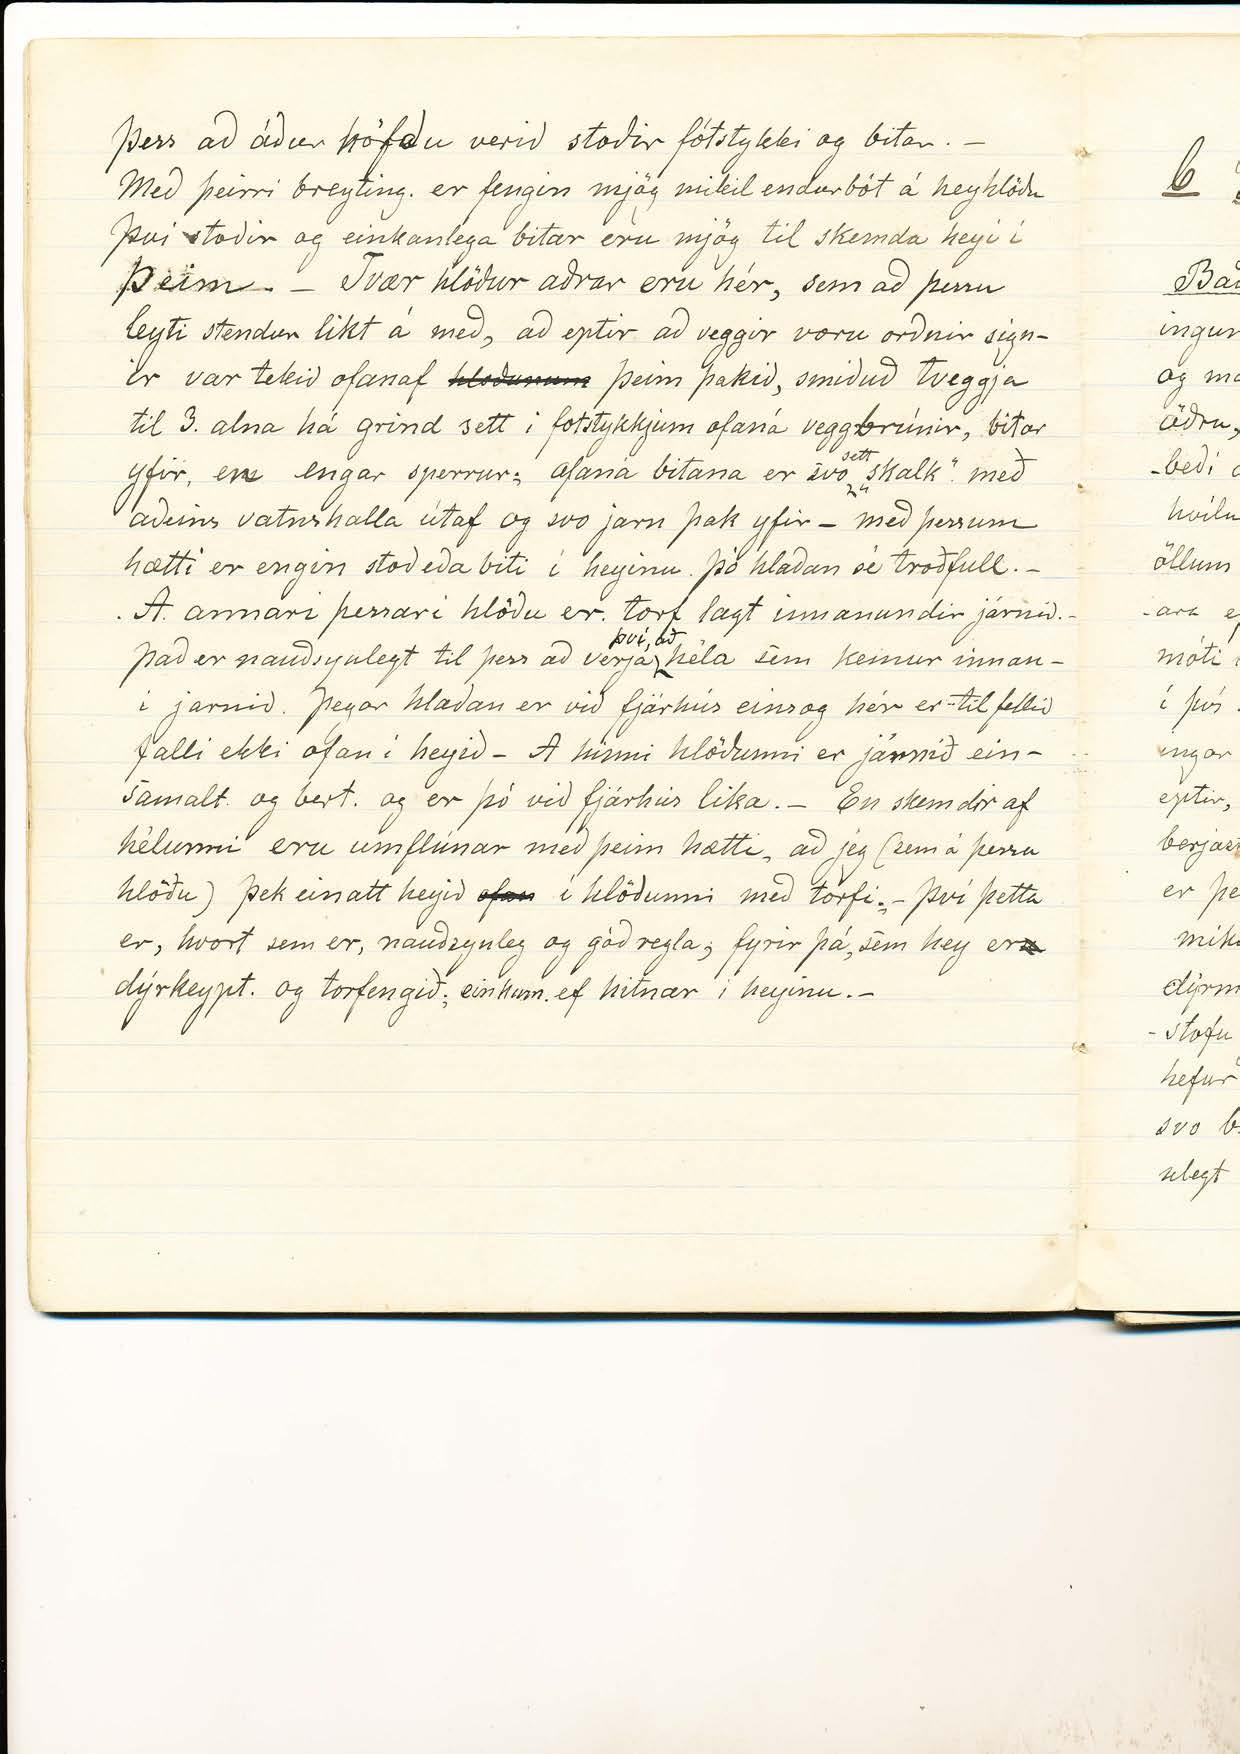 þess að áður höfðu verið stoðir fótstykki og bitar. –
Með þeirri breyting. er fengin mjög mikil endurbót á heyhlöðu
því stoðir og einkanlega bitar eru mjög til skemda heyi í
þeim. – Tvær hlöður aðrar eru hér, sem að þessu
leyti stendur líkt á með, að eptir að veggir voru orðnir sign-
ir var tekið ofanaf hlöðunum þeim þakið, smiðuð tveggja
til 3. alna há grind sett i fotstykkjum ofaná veggbrúnir, bitar
yfir, en engar sperrur; ofaná bitana er svo sett „skalk“ með
aðeins vatnshalla útaf og svo jarn þak yfir – með þessum
hætti er engin stoð eða biti í heyinu þó hlaðan sé troðfull. –
A annari þessari hlöðu er torf lagt innanundir járnið. –
Það er nauðsynlegt til þess að verja því, að héla sem kemur innan-
í jarnið. Þegar hlaðan er við fjárhús einsog hér er - til fellið
falli ekki ofan í heyið – A hinni hlöðunni er járnið ein-
samalt og bert. og er þó við fjárhús lika. – En skemdir af
hélunni eru umflúnar með þeim hætti, að jég (sem á þessa
hlöðu) þek einatt heyið ofan í hlöðunni með torfi. – því þetta
er, hvort sem er, nauðsynleg og góð regla; fyrir þá, sem hey er
dýrkeypt. og torfengið; einkum. ef hitnar i heyinu. –
6
ingur
og
öðru,
-beði
hvílu
öllum
móti
í því
ingar
eptir,
er þe
dýrm
-stofu
hefur
svo b
nlegt